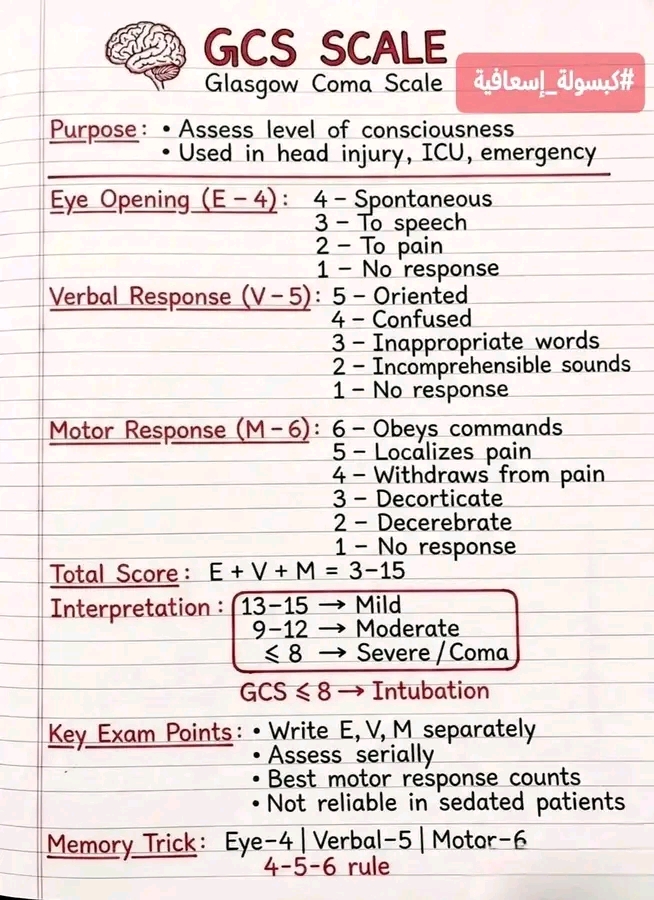 GCS SCALE
Glasgow Coma Scale
#كبسولة_إسعافية
Purpose: • Assess level of consciousness
• Used in head injury, ICU, emergency
Eye Opening (E – 4): 4 – Spontaneous
3 – To speech
2 – To pain
1 – No response
Verbal Response (V – 5): 5 – Oriented
4 – Confused
3 – Inappropriate words
2 – Incomprehensible sounds
1 – No response
Motor Response (M – 6): 6 – Obeys commands
5 – Localizes pain
4 – Withdraws from pain
3 – Decorticate
2 – Decerebrate
1 – No response
Total Score: E + V + M = 3–15
Interpretation: 13–15 → Mild
9–12 → Moderate
≤ 8 → Severe / Coma
GCS ≤ 8 → Intubation
Key Exam Points: • Write E, V, M separately
• Assess serially
• Best motor response counts
• Not reliable in sedated patients
Memory Trick: Eye–4 | Verbal–5 | Motor–6
4-5-6 rule